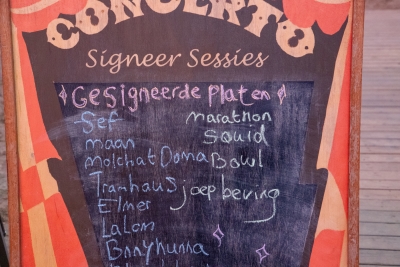 CONCERTO
Signeer Sessies
Gesigneerde Platen
Sef
maan
molchat Doma
Tramhaus
Elmer
Lalom
Bnnyhunna
marathon
Squid
Bowl
joep beving